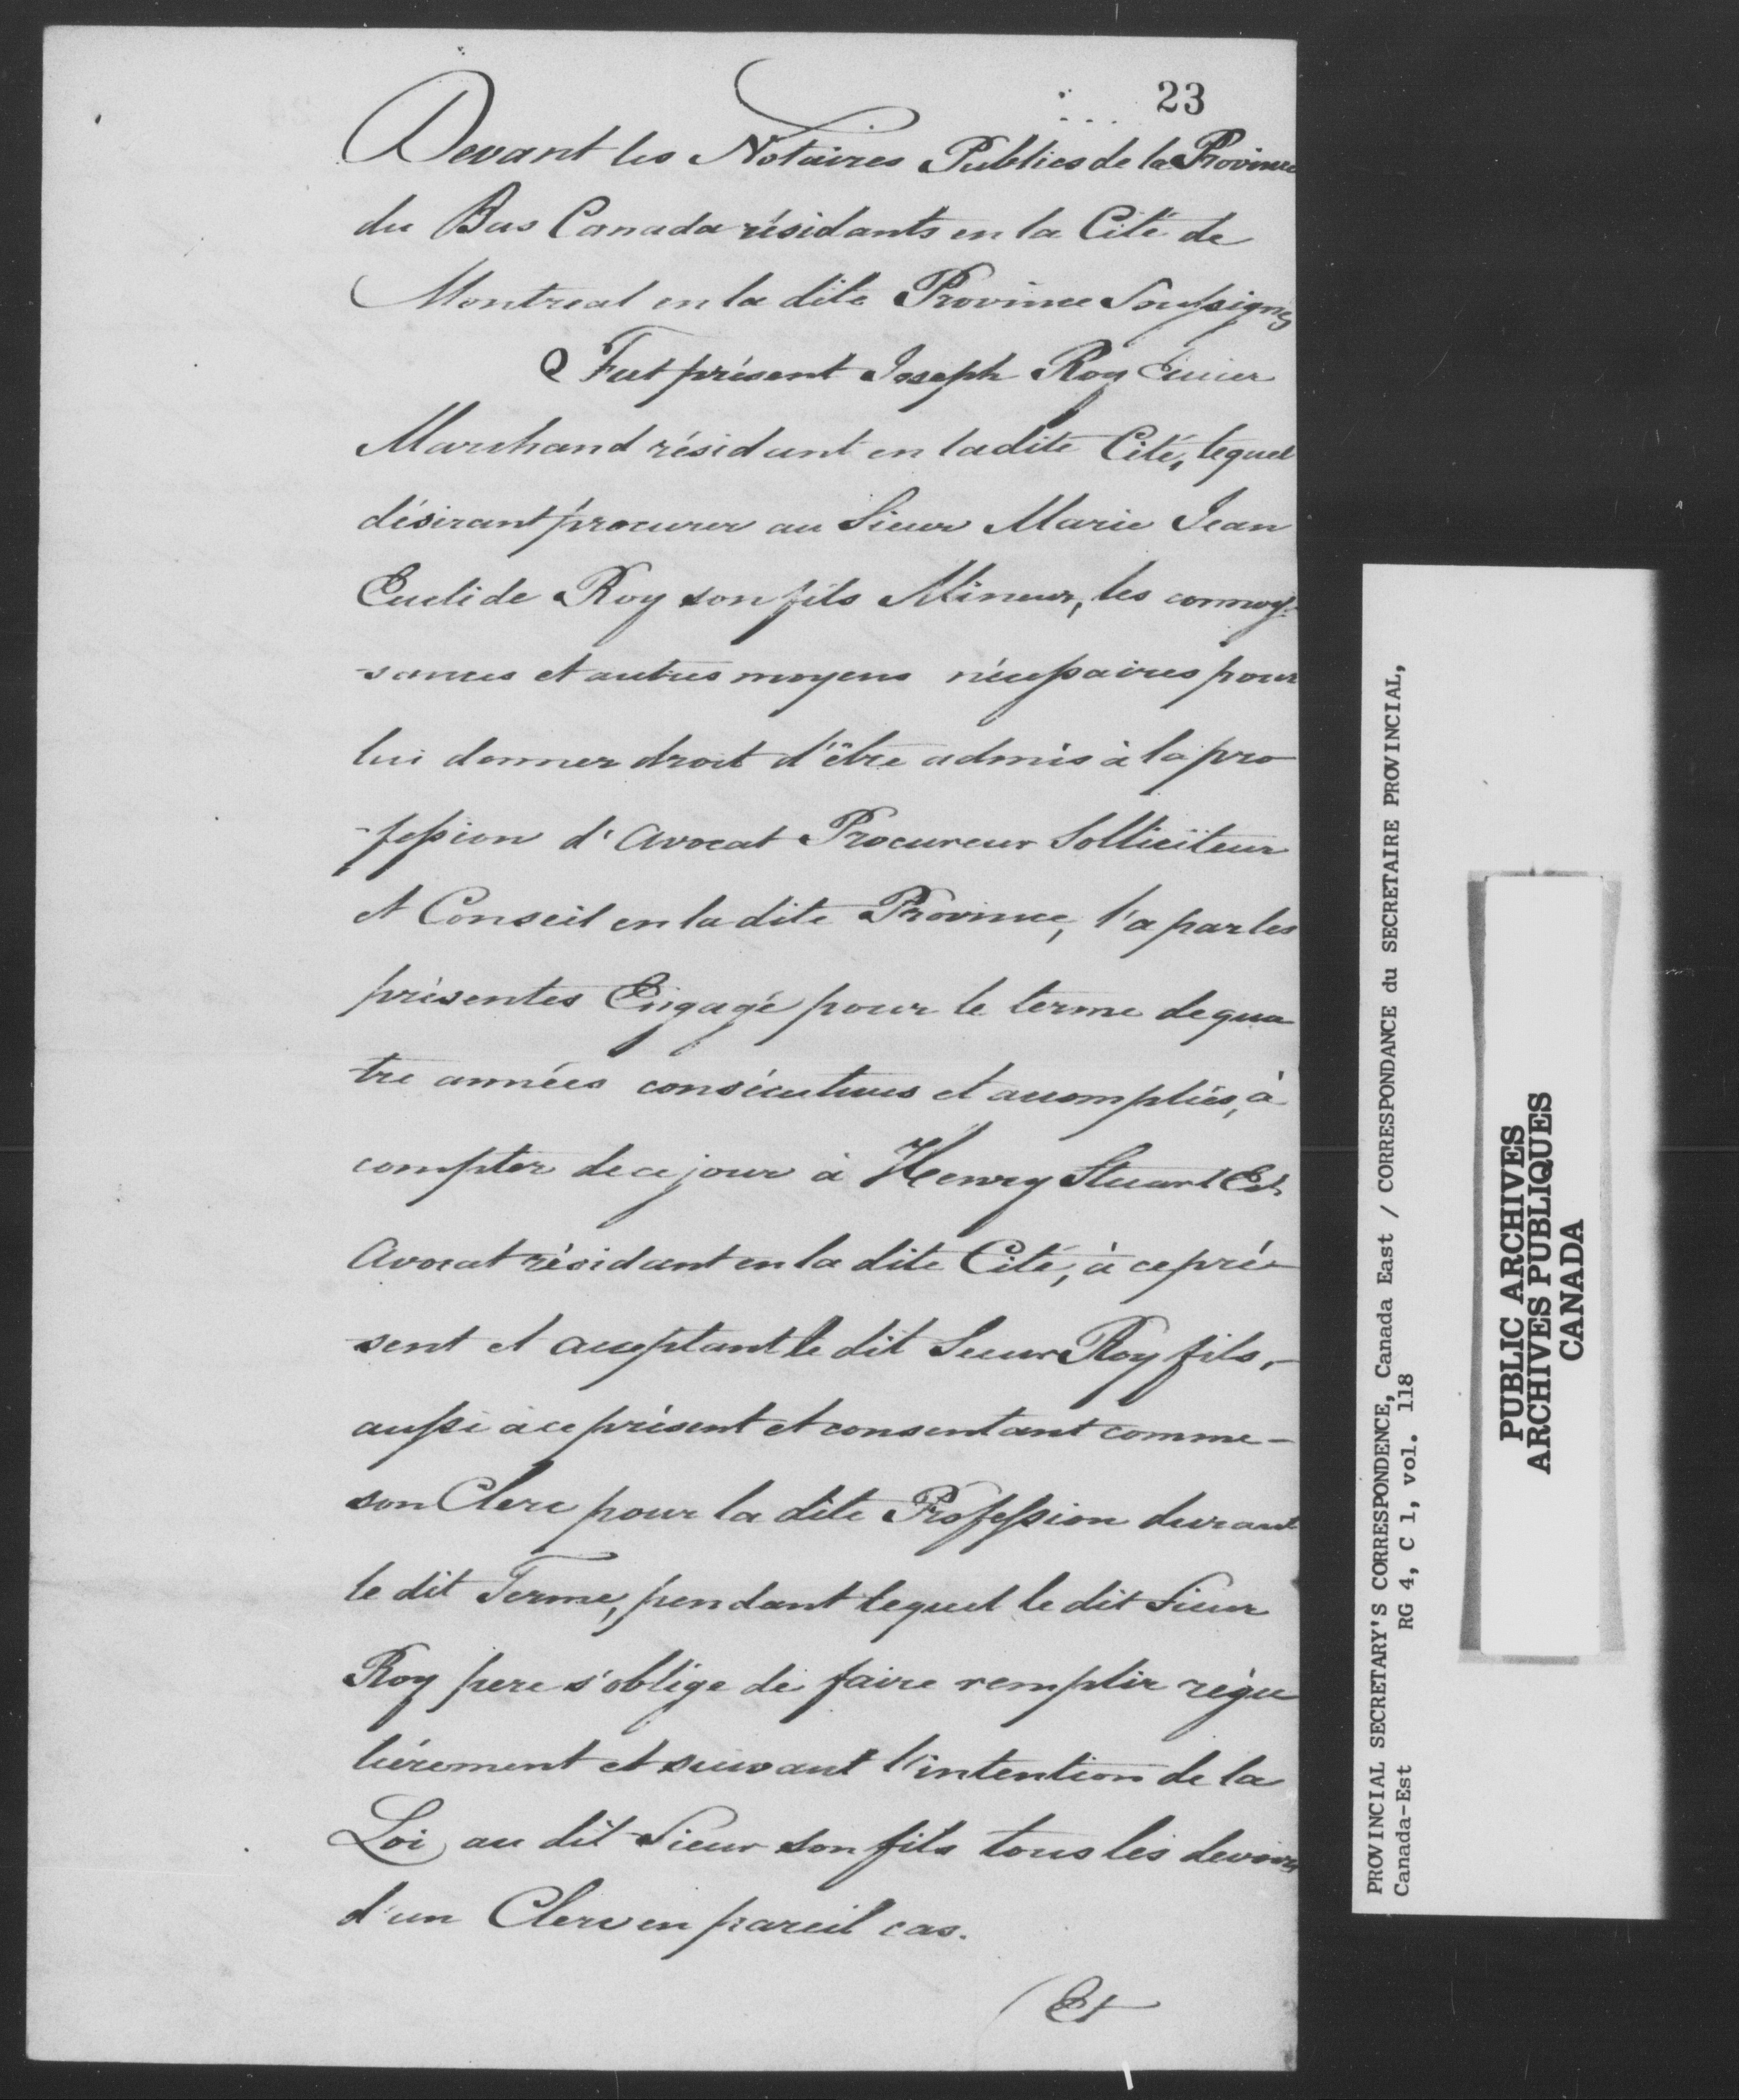 23
Devant les Notaires Publics de la Province
du Bas Canada résidants en la Cité de
Montreal en la dite Province Soussignés
Fut présent Joseph Roy Ecuier
Marchand résidant en la dite Cité, lequel
désirant procurer au Sieur Marie Jean
Euclide Roy son fils Mineur, les connoys-
-sances et autres moyens nécessaires pour
lui donner droit d'être admis à la pro
-fession d'Avocat Procureur Solliciteur
et Conseil en la dite Province, l'a par les
présentes Engagé pour le terme de qua
tre années consécutives et accomplies, à
compter de ce jour à Henry Stuart Ec.
Avocat résidant en la dite Cité, à ce pré-
sent et acceptant le dit Sieur Roy fils,
aussi à ce présent et consentant comme-
son Clerc pour la dite Profession durant
le dit Terme, pendant lequel le dit Sieur
Roy pere s'oblige de faire remplir régu
lièrement et suivant l'intention de la
Loi au dit Sieur son fils tous les devoirs
d'un Clerc en pareil cas.
Et
PROVINCIAL SECRETARY'S CORRESPONDENCE, Canada East / CORRESPONDANCE du SECRETAIRE PROVINCIAL,
Canada-Est RG 4, C 1, vol. 118
PUBLIC ARCHIVES
ARCHIVES PUBLIQUES
CANADA